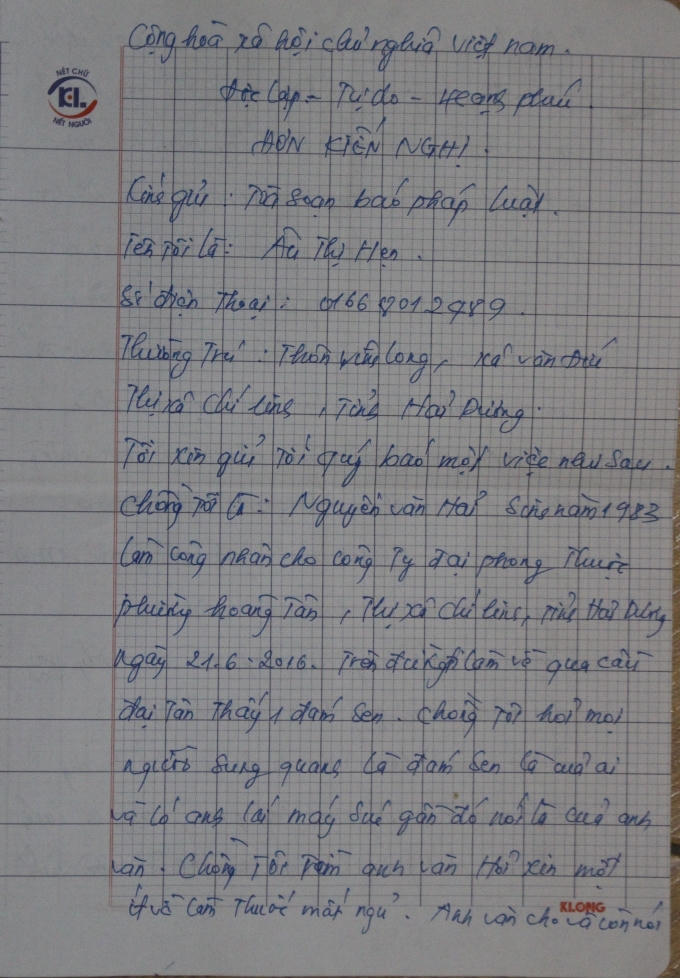 Cộng hoà xã hội chủ nghĩa việt nam.
NÉT CHỮ
KL
NẾT NGƯỜI
Độc lập - Tự do - Hạnh phúc.
ĐƠN KIẾN NGHỊ.
Kính gửi: Toà soạn báo pháp luật.
Tên tôi là: Âu Thị Hẹn.
Số điện thoại: 01668012989.
Thường Trú: Thôn vĩnh long, xã văn Đức
Thị xã chí linh, Tỉnh Hải Dương.
Tôi xin gửi tới quý báo một việc như sau.
Chồng tôi là: Nguyễn văn Hải Sinh năm 1983
làm công nhân cho công ty đại phong Thuộc
phường hoàng tân, Thị xã chí linh, Tỉnh Hải Dương
ngày 21.6.2016. Trên đường đi làm về qua cầu
đại tân thấy 1 đám sen. Chồng tôi hỏi mọi
người sung quanh là đám sen là của ai
và có anh lái máy súc gần đó nói là của anh
văn. Chồng tôi tìm anh văn Hỏi xin một
ít về làm thuốc mất ngủ. Anh văn cho và còn nói
KLONG